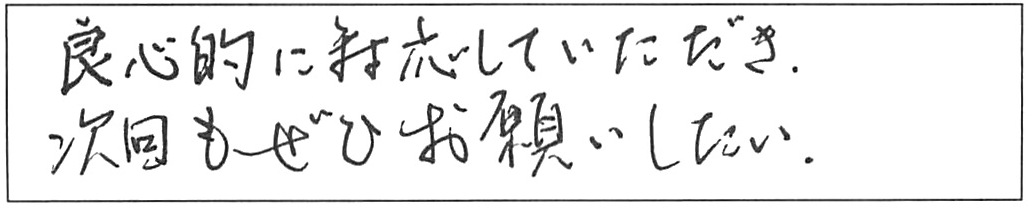 良心的に対応していただき.
次回もぜひお願いしたい.